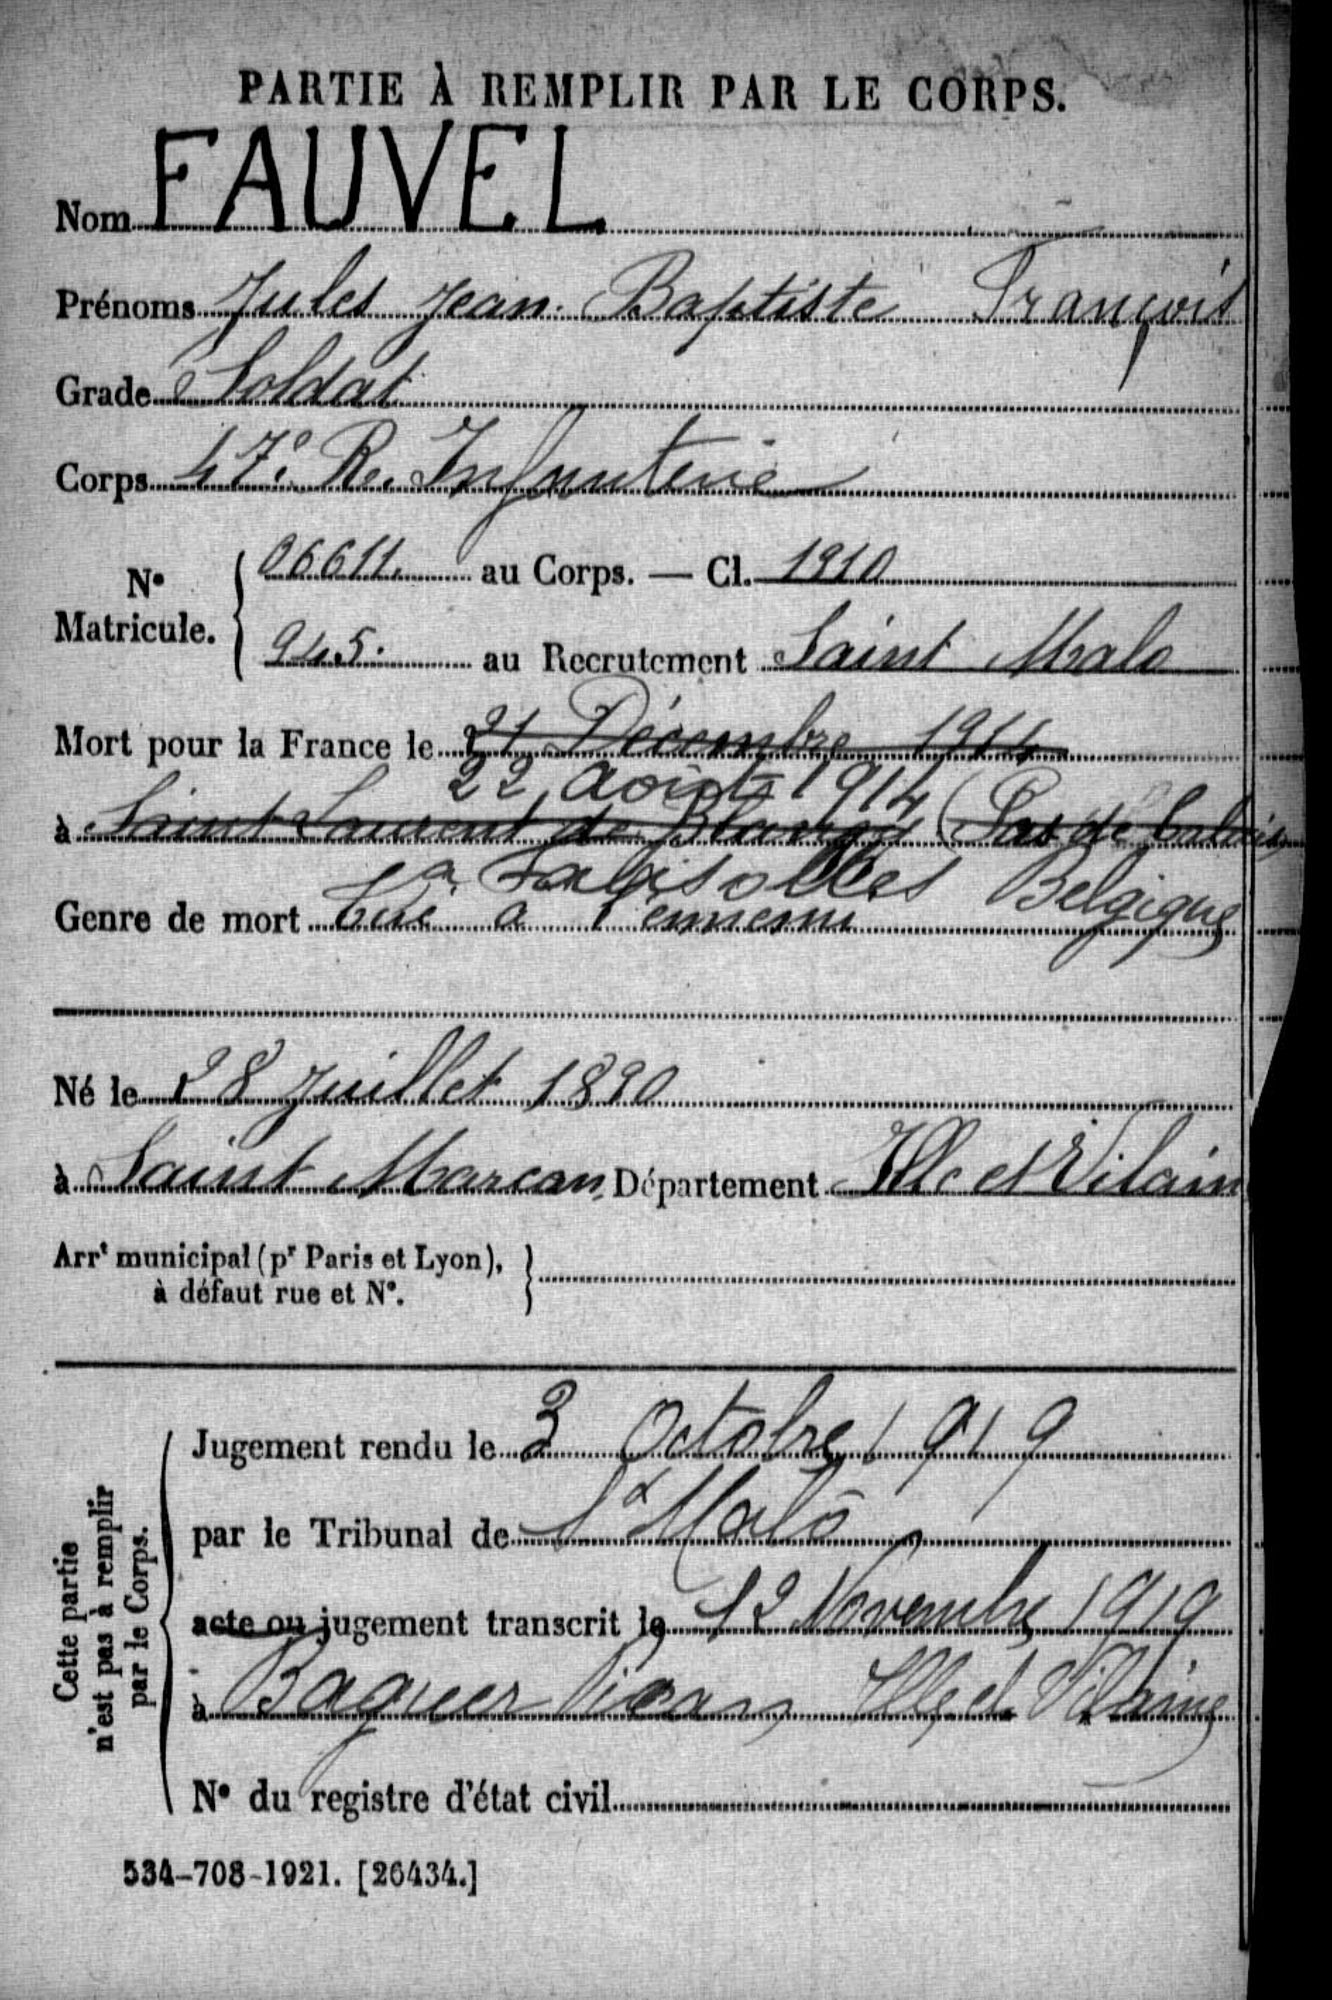 PARTIE À REMPLIR PAR LE CORPS.
Nom FAUVEL
Prénoms Jules Jean Baptiste François
Grade Soldat
Corps 47e R. Infanterie
No Matricule. { 06611. au Corps. — Cl. 1910
945. au Recrutement Saint Malo
Mort pour la France le 21 Décembre 1914
22 août 1914
à Saint Laurent de Blangy (Pas de Calais)
à Falisolles Belgique
Genre de mort Tué à l'ennemi
Né le 28 Juillet 1890
à Saint Marcan Département Ille et Vilain
Arrt municipal (pr Paris et Lyon), }
à défaut rue et No.
Cette partie n'est pas à remplir par le Corps.
Jugement rendu le 3 Octobre 1919
par le Tribunal de St Malo
acte ou jugement transcrit le 12 Novembre 1919
à Baguer Pican Ille et Vilaine
No du registre d'état civil
534-708-1921. [26434.]